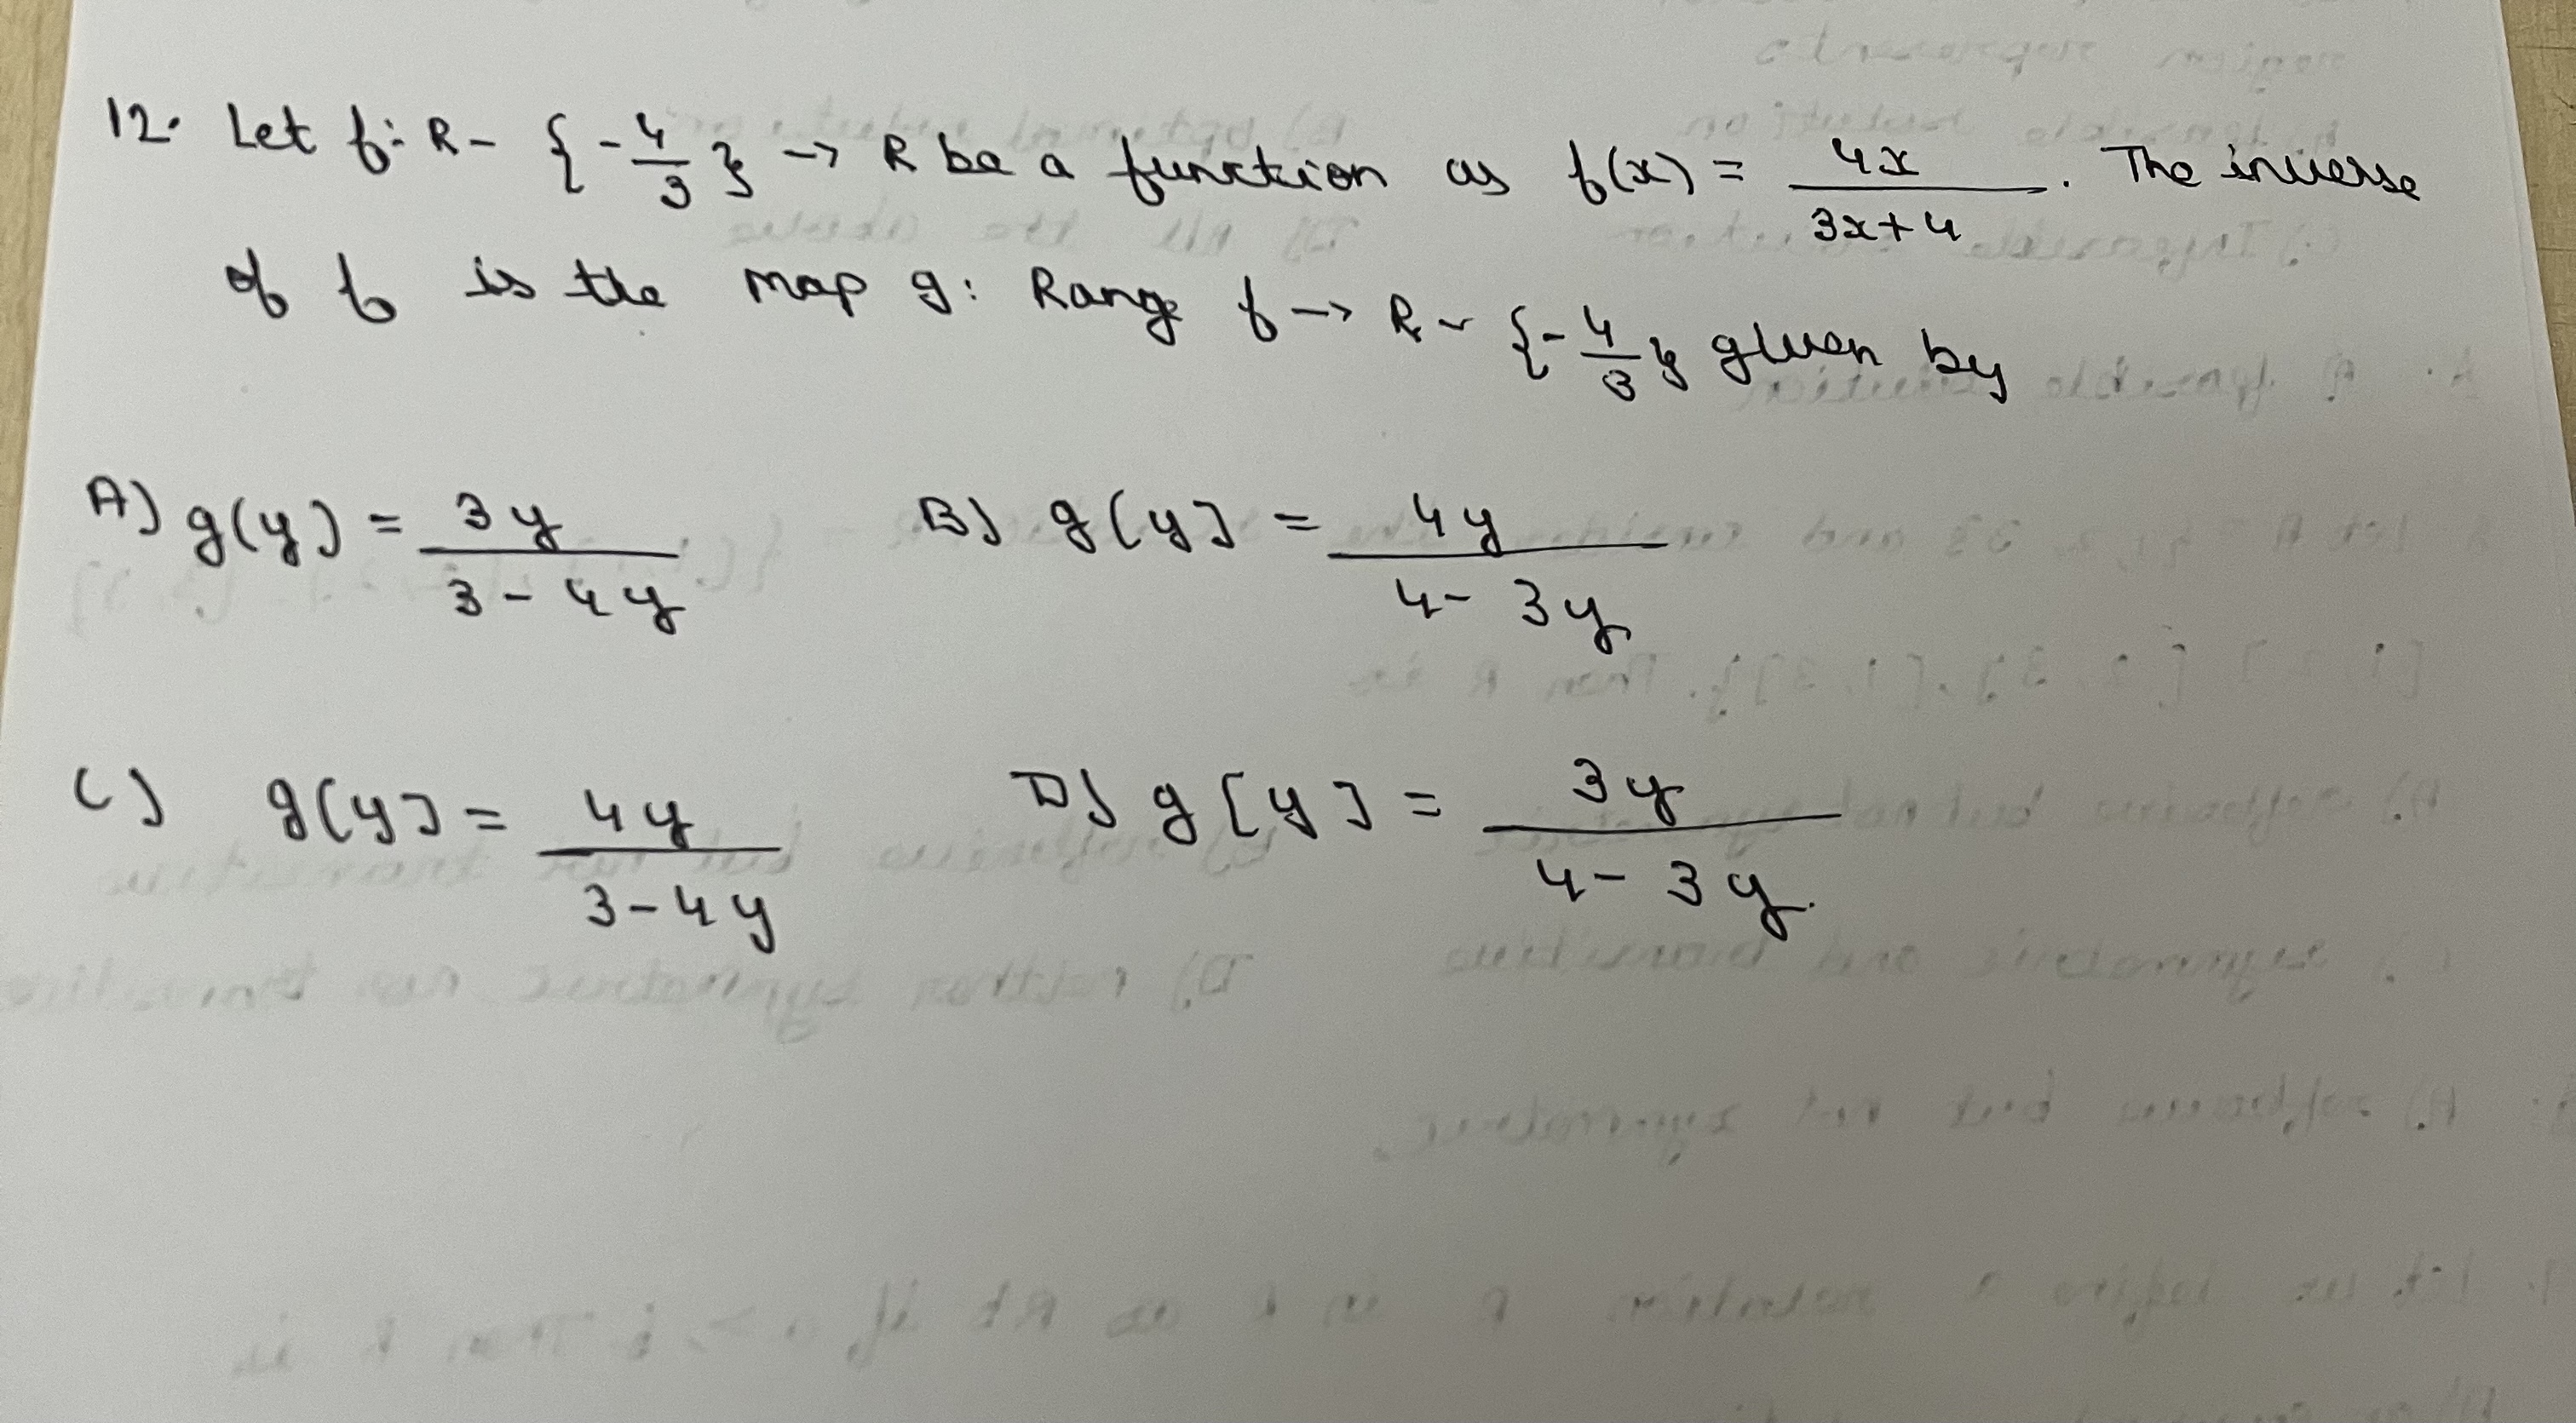 12. Let f: R - {-4/3} -> R be a function as f(x) = 4x/(3x+4). The inverse
of f is the map g: Range f -> R - {-4/3} given by
A) g(y) = 3y/(3-4y) B) g(y) = 4y/(4-3y)
C) g(y) = 4y/(3-4y) D) g[y] = 3y/(4-3y)